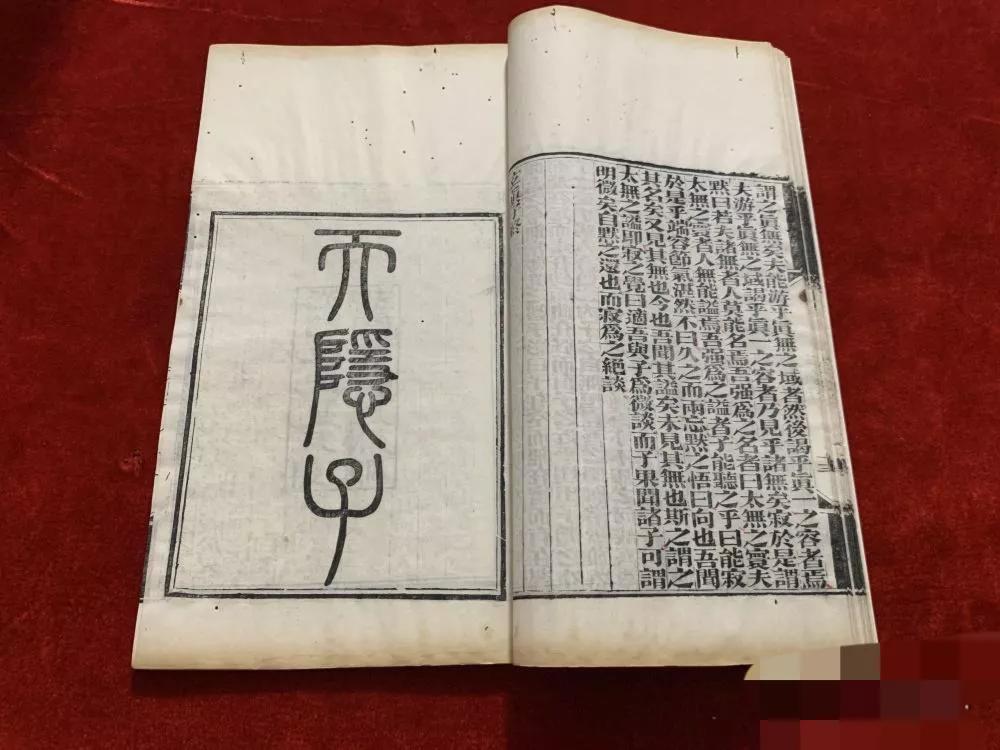 謂之眞無矣夫能游乎眞無之域者然後謁乎眞一之容者焉
夫游乎眞無之域謁乎眞一之容者乃見乎諸無矣寂於是謂
默曰若夫諸無者人莫能名焉吾强爲之名者曰太無之夫
太無之者人無能謚焉吾强爲之謚者子能聽之乎曰能寂
於是乎端容節氣湛然不曰久之而兩忘默之悟曰向也吾聞
其名矣又見其無也今也吾聞其謚矣未見其無也斯之謂之
太無之謚耶寂之覺曰適吾與子爲微談而子果聞諸子可謂
明微矣自默之還也而寂爲之絶談
天隱子